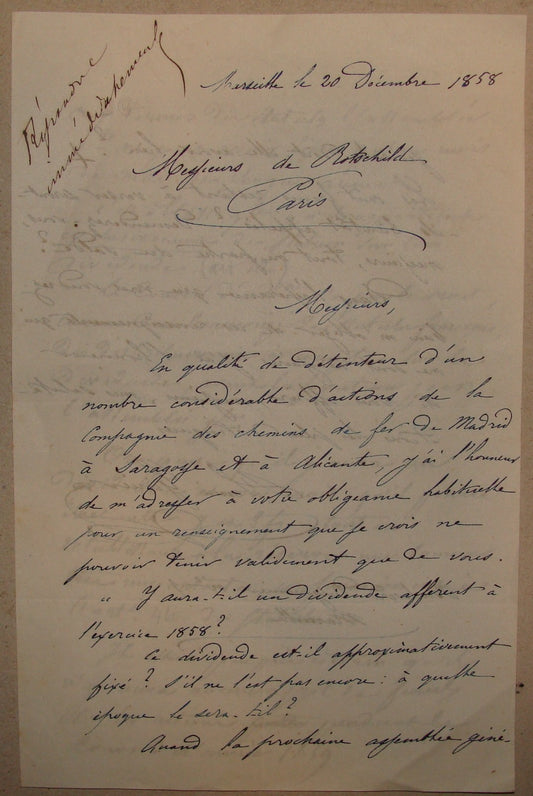 Répondre
immédiatement
Marseille le 20 Décembre 1858
Messieurs de Rotschild
Paris
Messieurs,
En qualité de détenteur d'un
nombre considérable d'actions de la
Compagnie des chemins de fer de Madrid
à Saragosse et à Alicante, j'ai l'honneur
de m'adresser à votre obligeance habituelle
pour un renseignement que je crois ne
pouvoir tenir validement que de vous.
" Y aura-t-il un dividende afférent à
l'exercice 1858?
Ce dividende est-il approximativement
fixé? S'il ne l'est pas encore: à quelle
époque le sera-t-il?
Quand la prochaine assemblée géné-